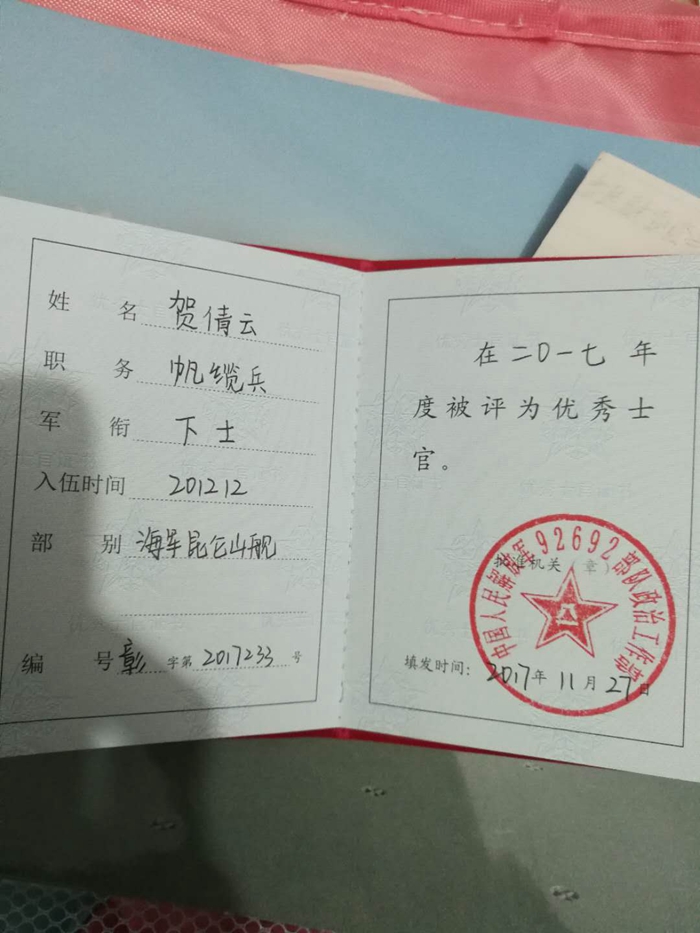 姓 名 贺倩云
职 务 帆缆兵
军 衔 下士
入伍时间 201212
部 别 海军昆仑山舰
编 号 彰 字第 2017233 号
在二〇一七 年
度被评为优秀士
官。
批准机关（章）
中国人民解放军92692部队政治工作部
八一
填发时间： 2017年 11月 27日